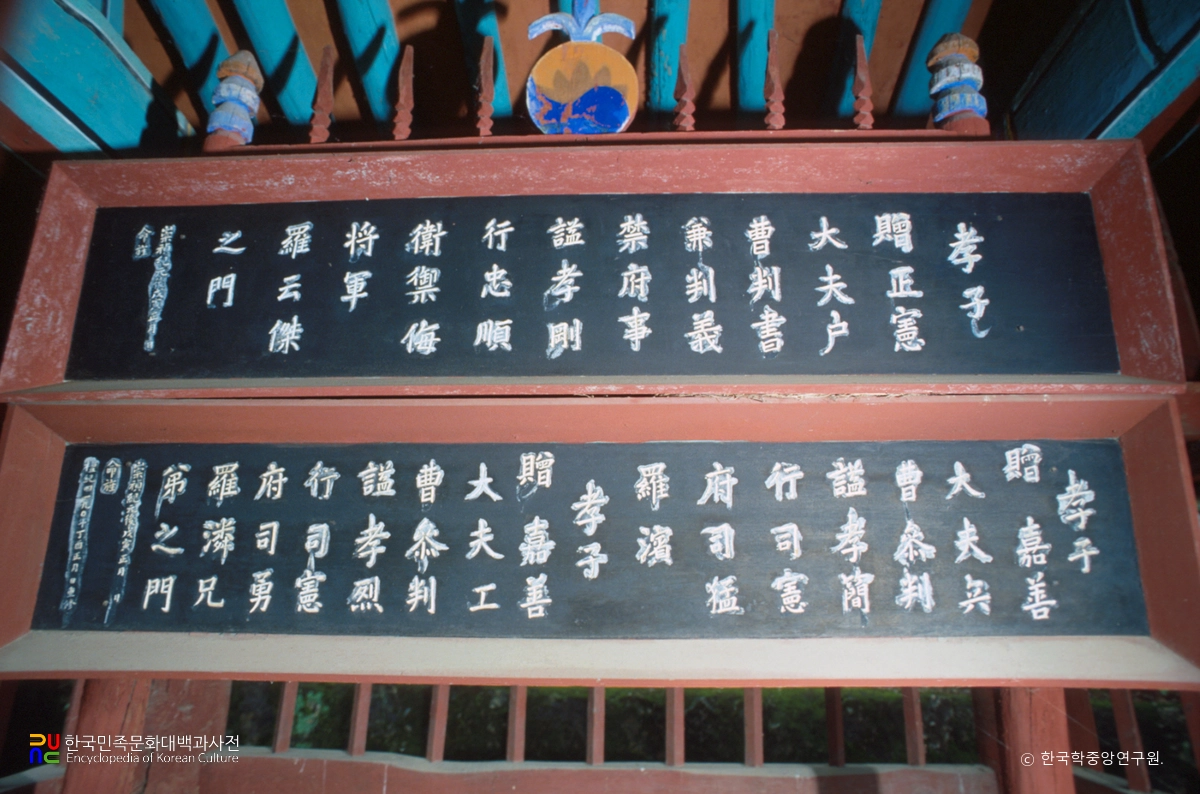 孝子
贈正憲
大夫户
曹判書
兼判義
禁府事
諡孝剛
行忠順
衛禦侮
将軍
羅云傑
之門
崇禎紀元後戊寅
命旌
孝子
贈嘉善
大夫兵
曹叅判
諡孝簡
行司憲
府司猛
羅濱
孝子
贈嘉善
大夫工
曹叅判
諡孝烈
行司憲
府司勇
羅潾兄
弟之門
崇禎紀元後戊寅正月 日
命旌
丁酉正月
한국민족문화대백과사전
Encyclopedia of Korean Culture
© 한국학중앙연구원.